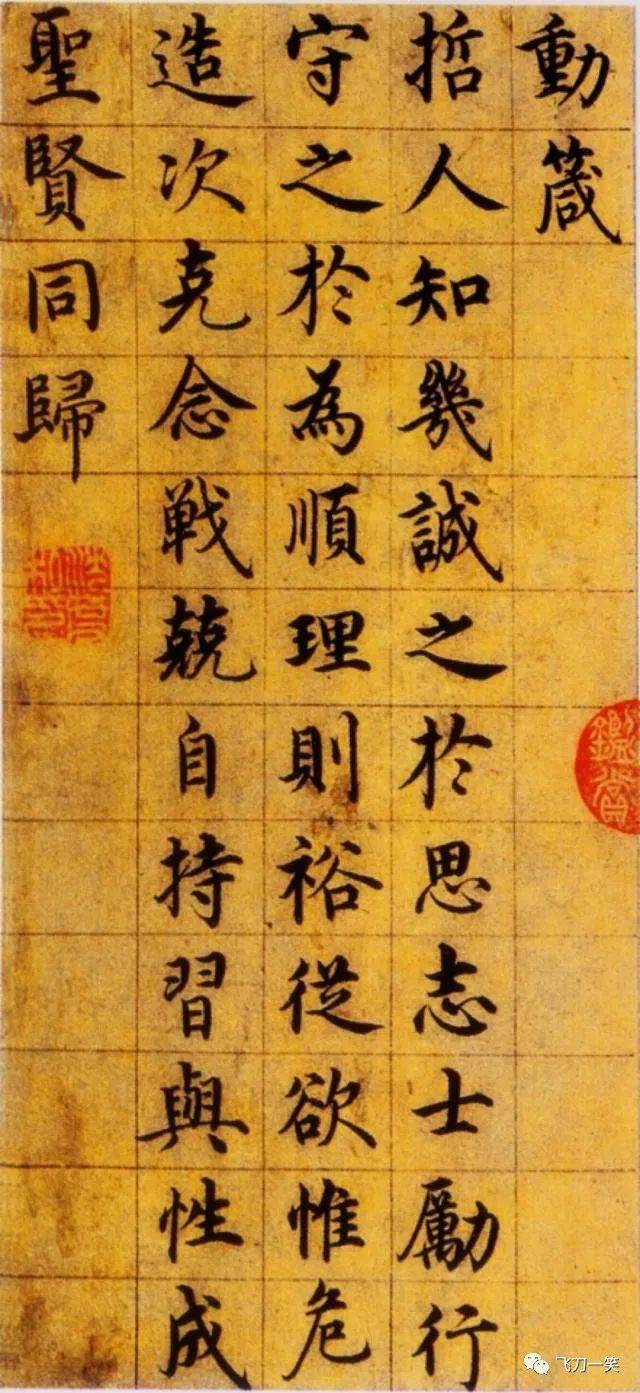 動箴
哲人知幾誠之於思志士勵行
守之於為順理則裕從欲惟危
造次克念戰兢自持習與性成
聖賢同歸
鑑賞
飞刀一笑